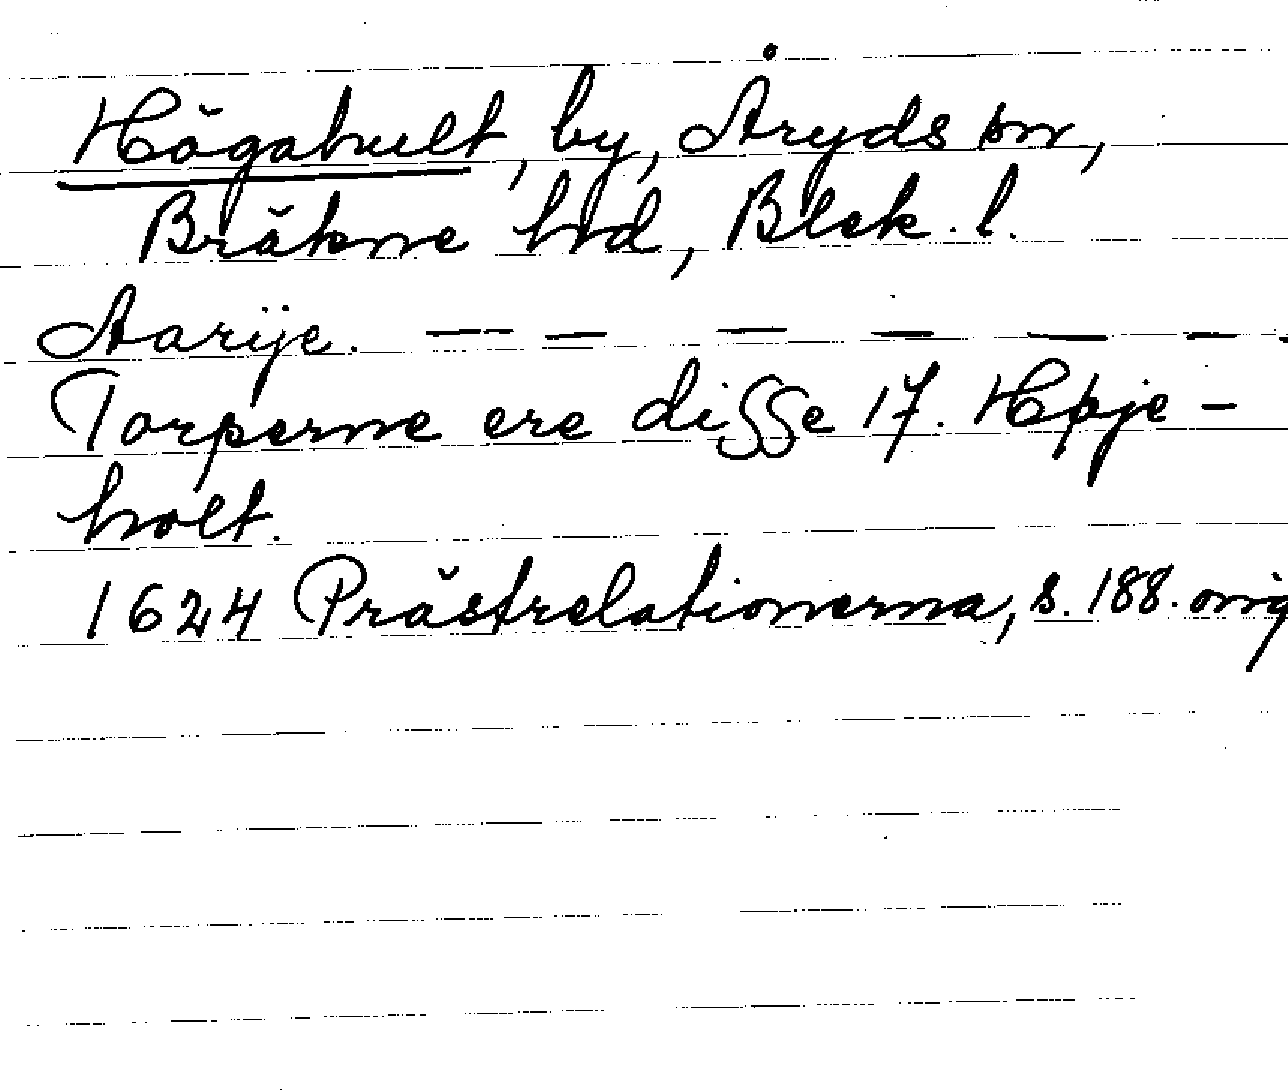 Högahult, by, Åryds sn,
Bräkne hd, Blek. l.
Aarÿe. — — — — — —
Torperne ere disse 17. Høje-
holt.
1624 Prästrelationerna, s. 188. orig